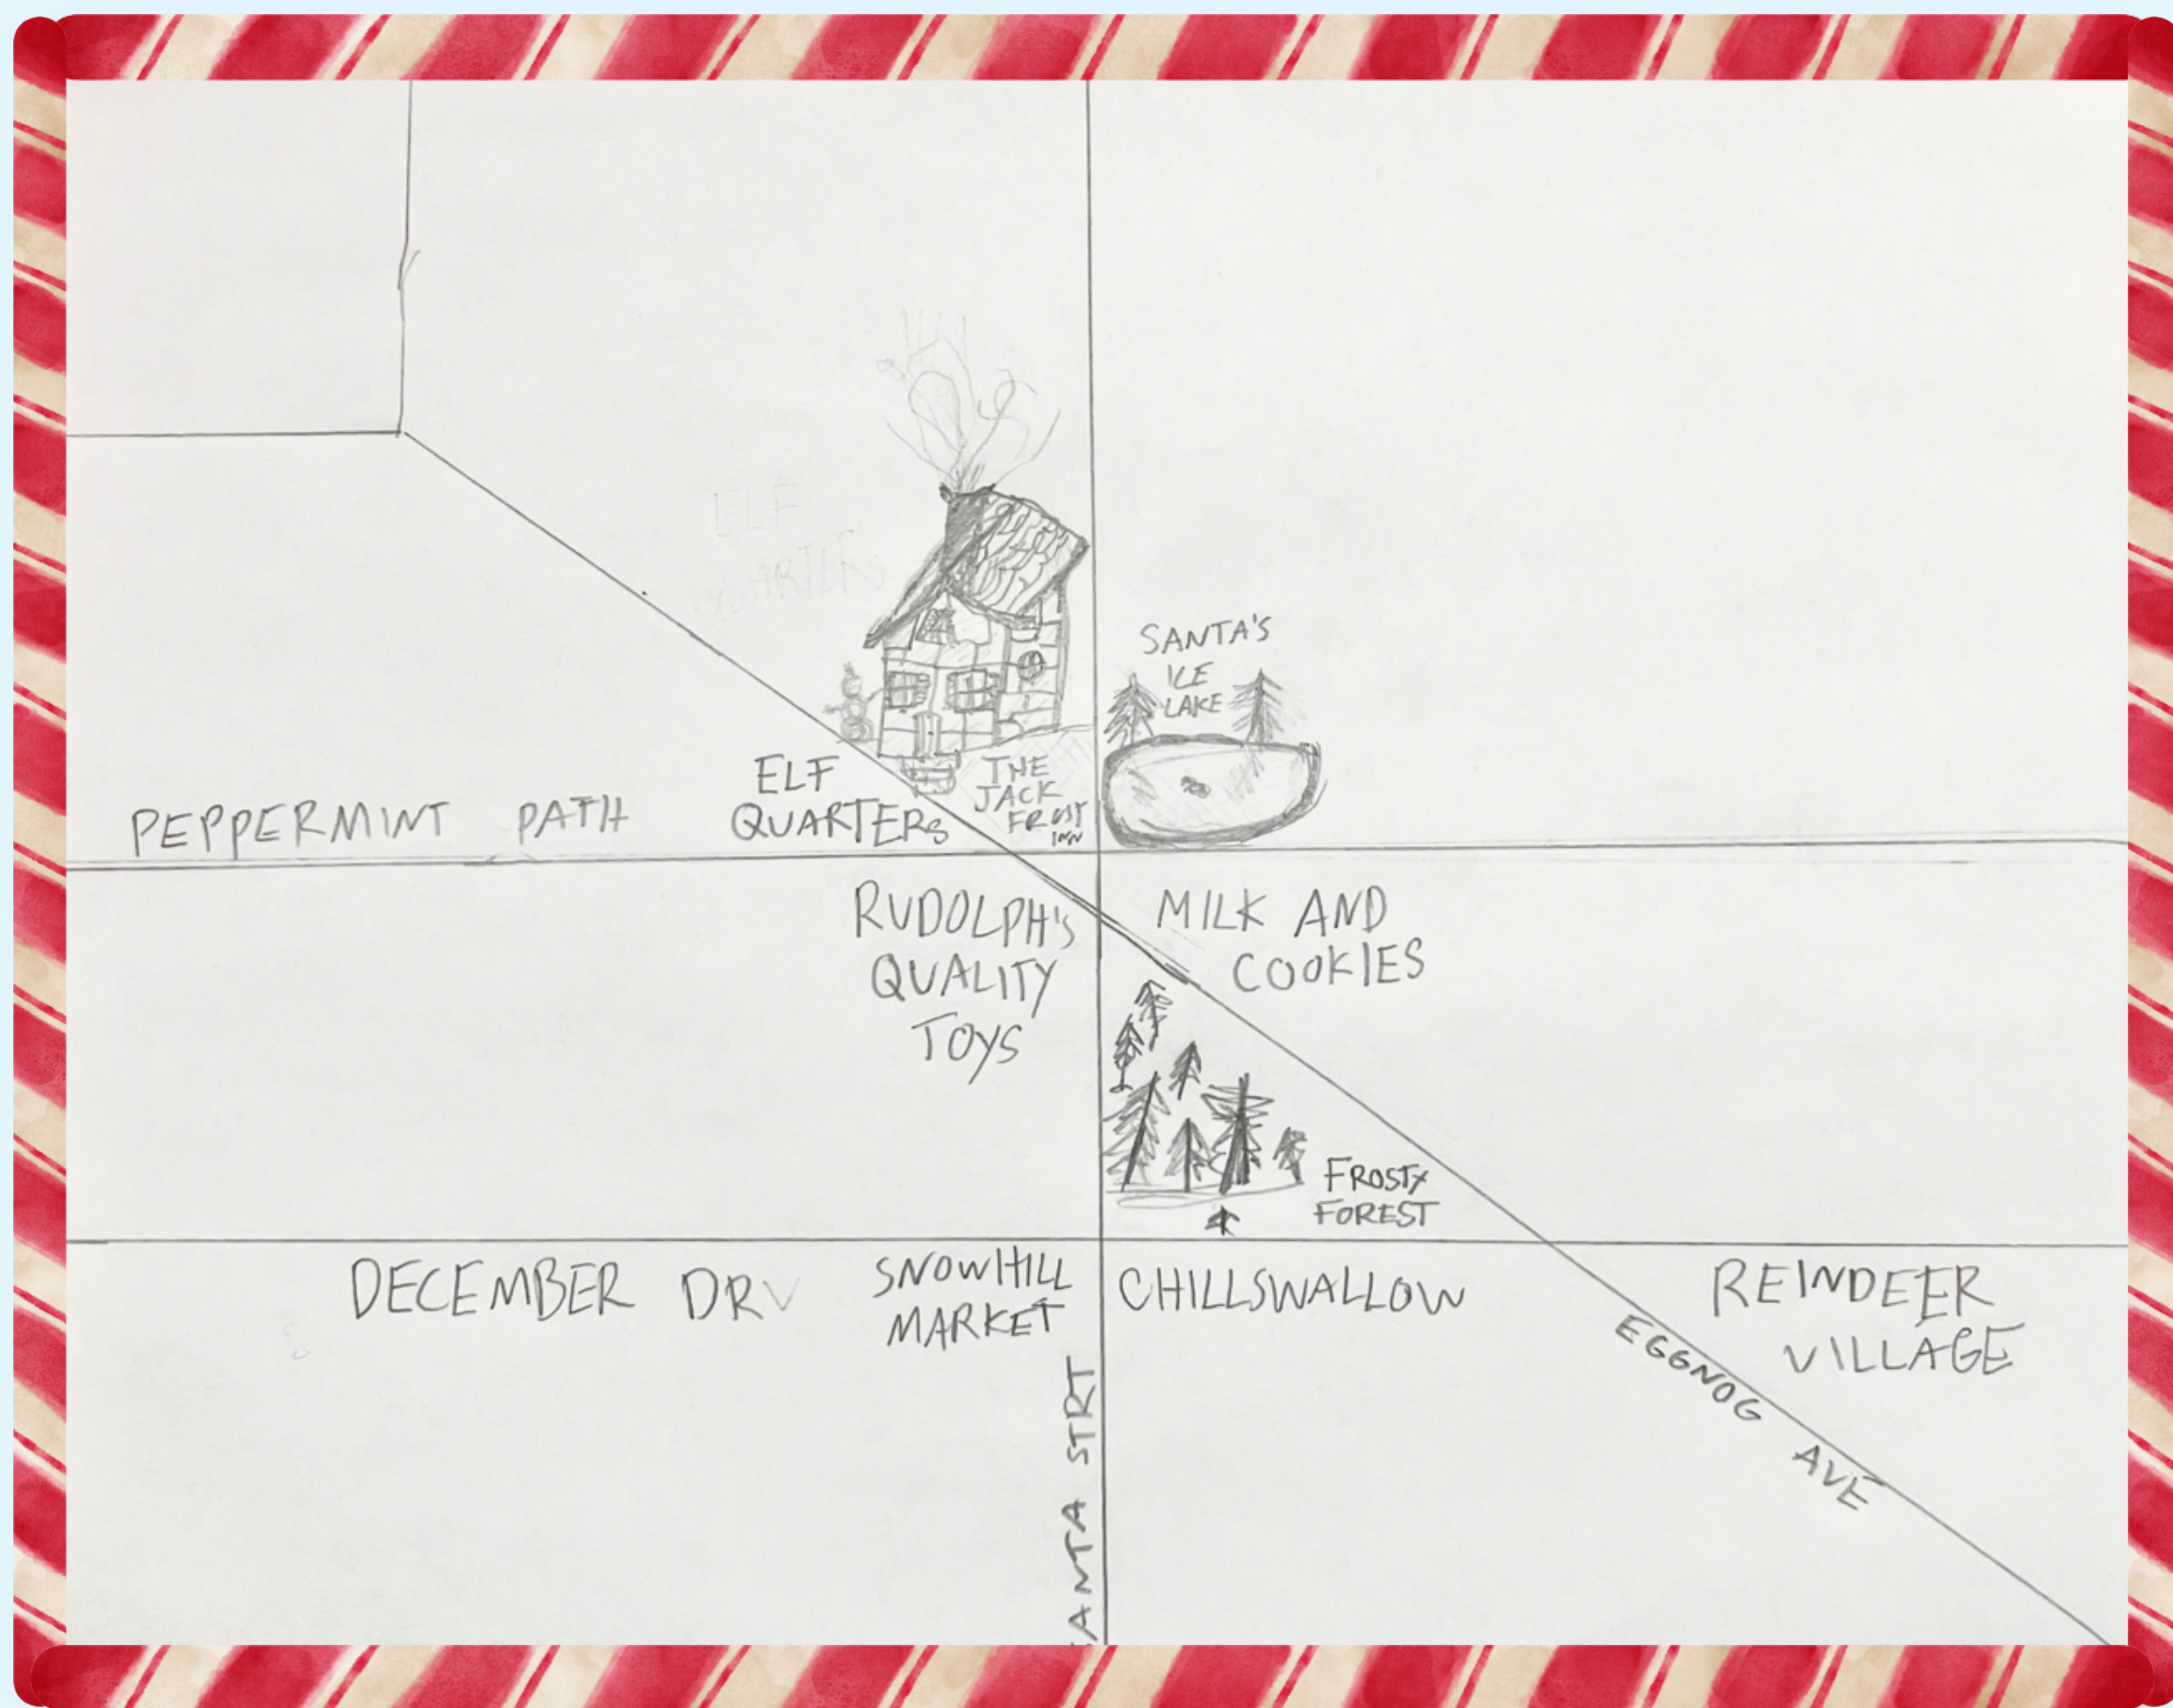 ELF
QUARTERS
SANTA'S
ICE
LAKE
ELF
QUARTERS
THE
JACK
FROST
INN
PEPPERMINT PATH
RUDOLPH'S
QUALITY
TOYS
MILK AND
COOKIES
FROSTY
FOREST
DECEMBER DRV
SNOWHILL
MARKET
CHILLSWALLOW
REINDEER
VILLAGE
EGGNOG AVE
SANTA STRT